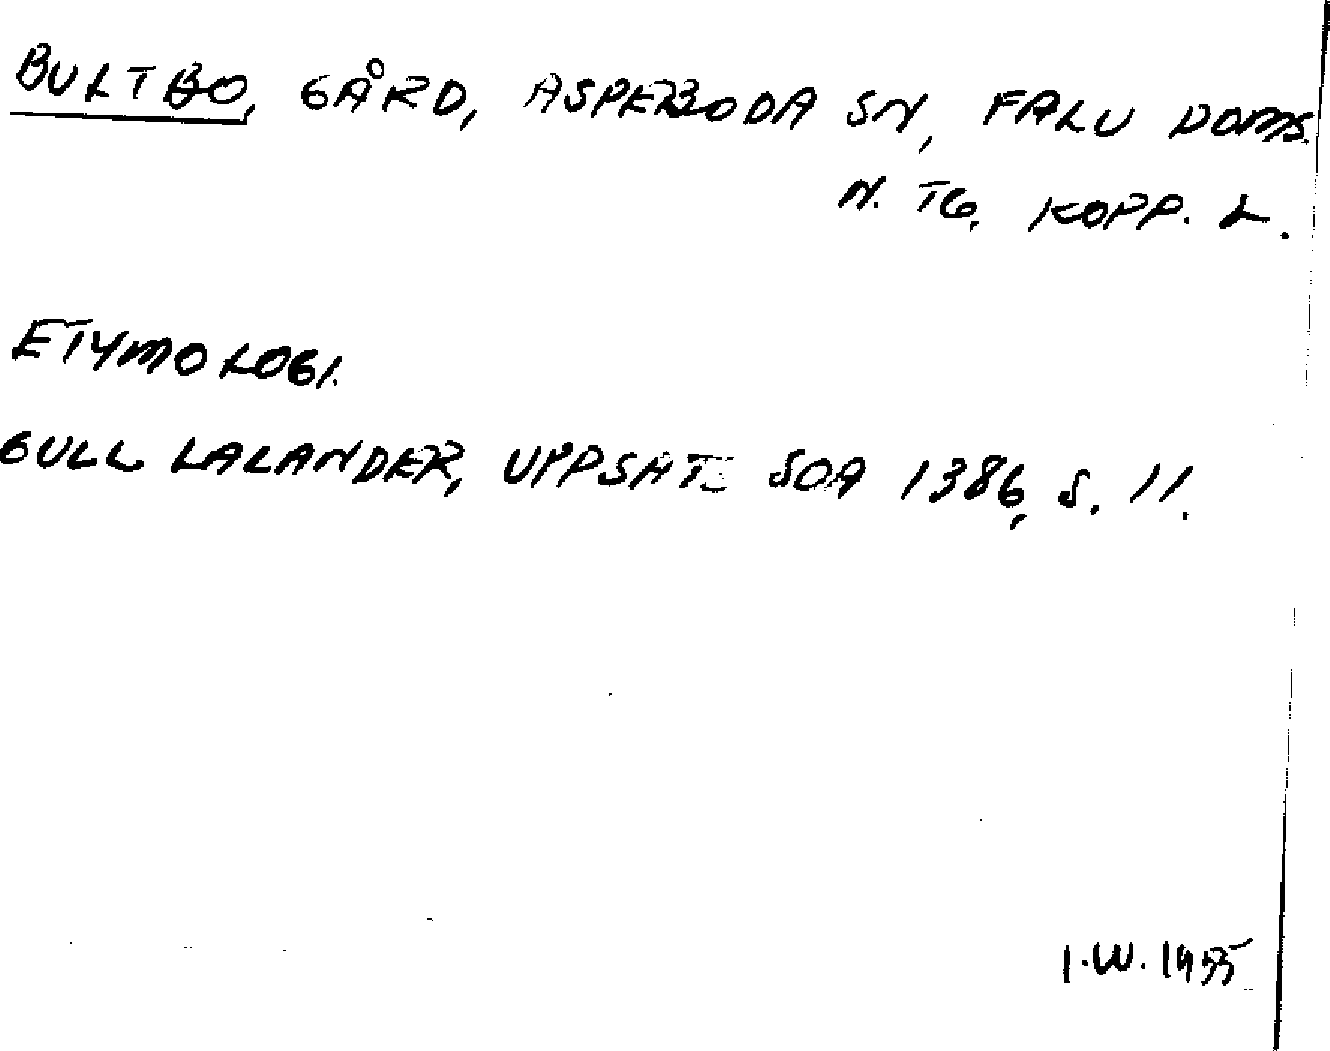 BULTBO, GÅRD, ASPEBODA SN, FALU DOMS.
N. TG, KOPP. L.
ETYMOLOGI.
GULL LALANDER, UPPSATS SOA 1386, S. 11.
I.W. 1955